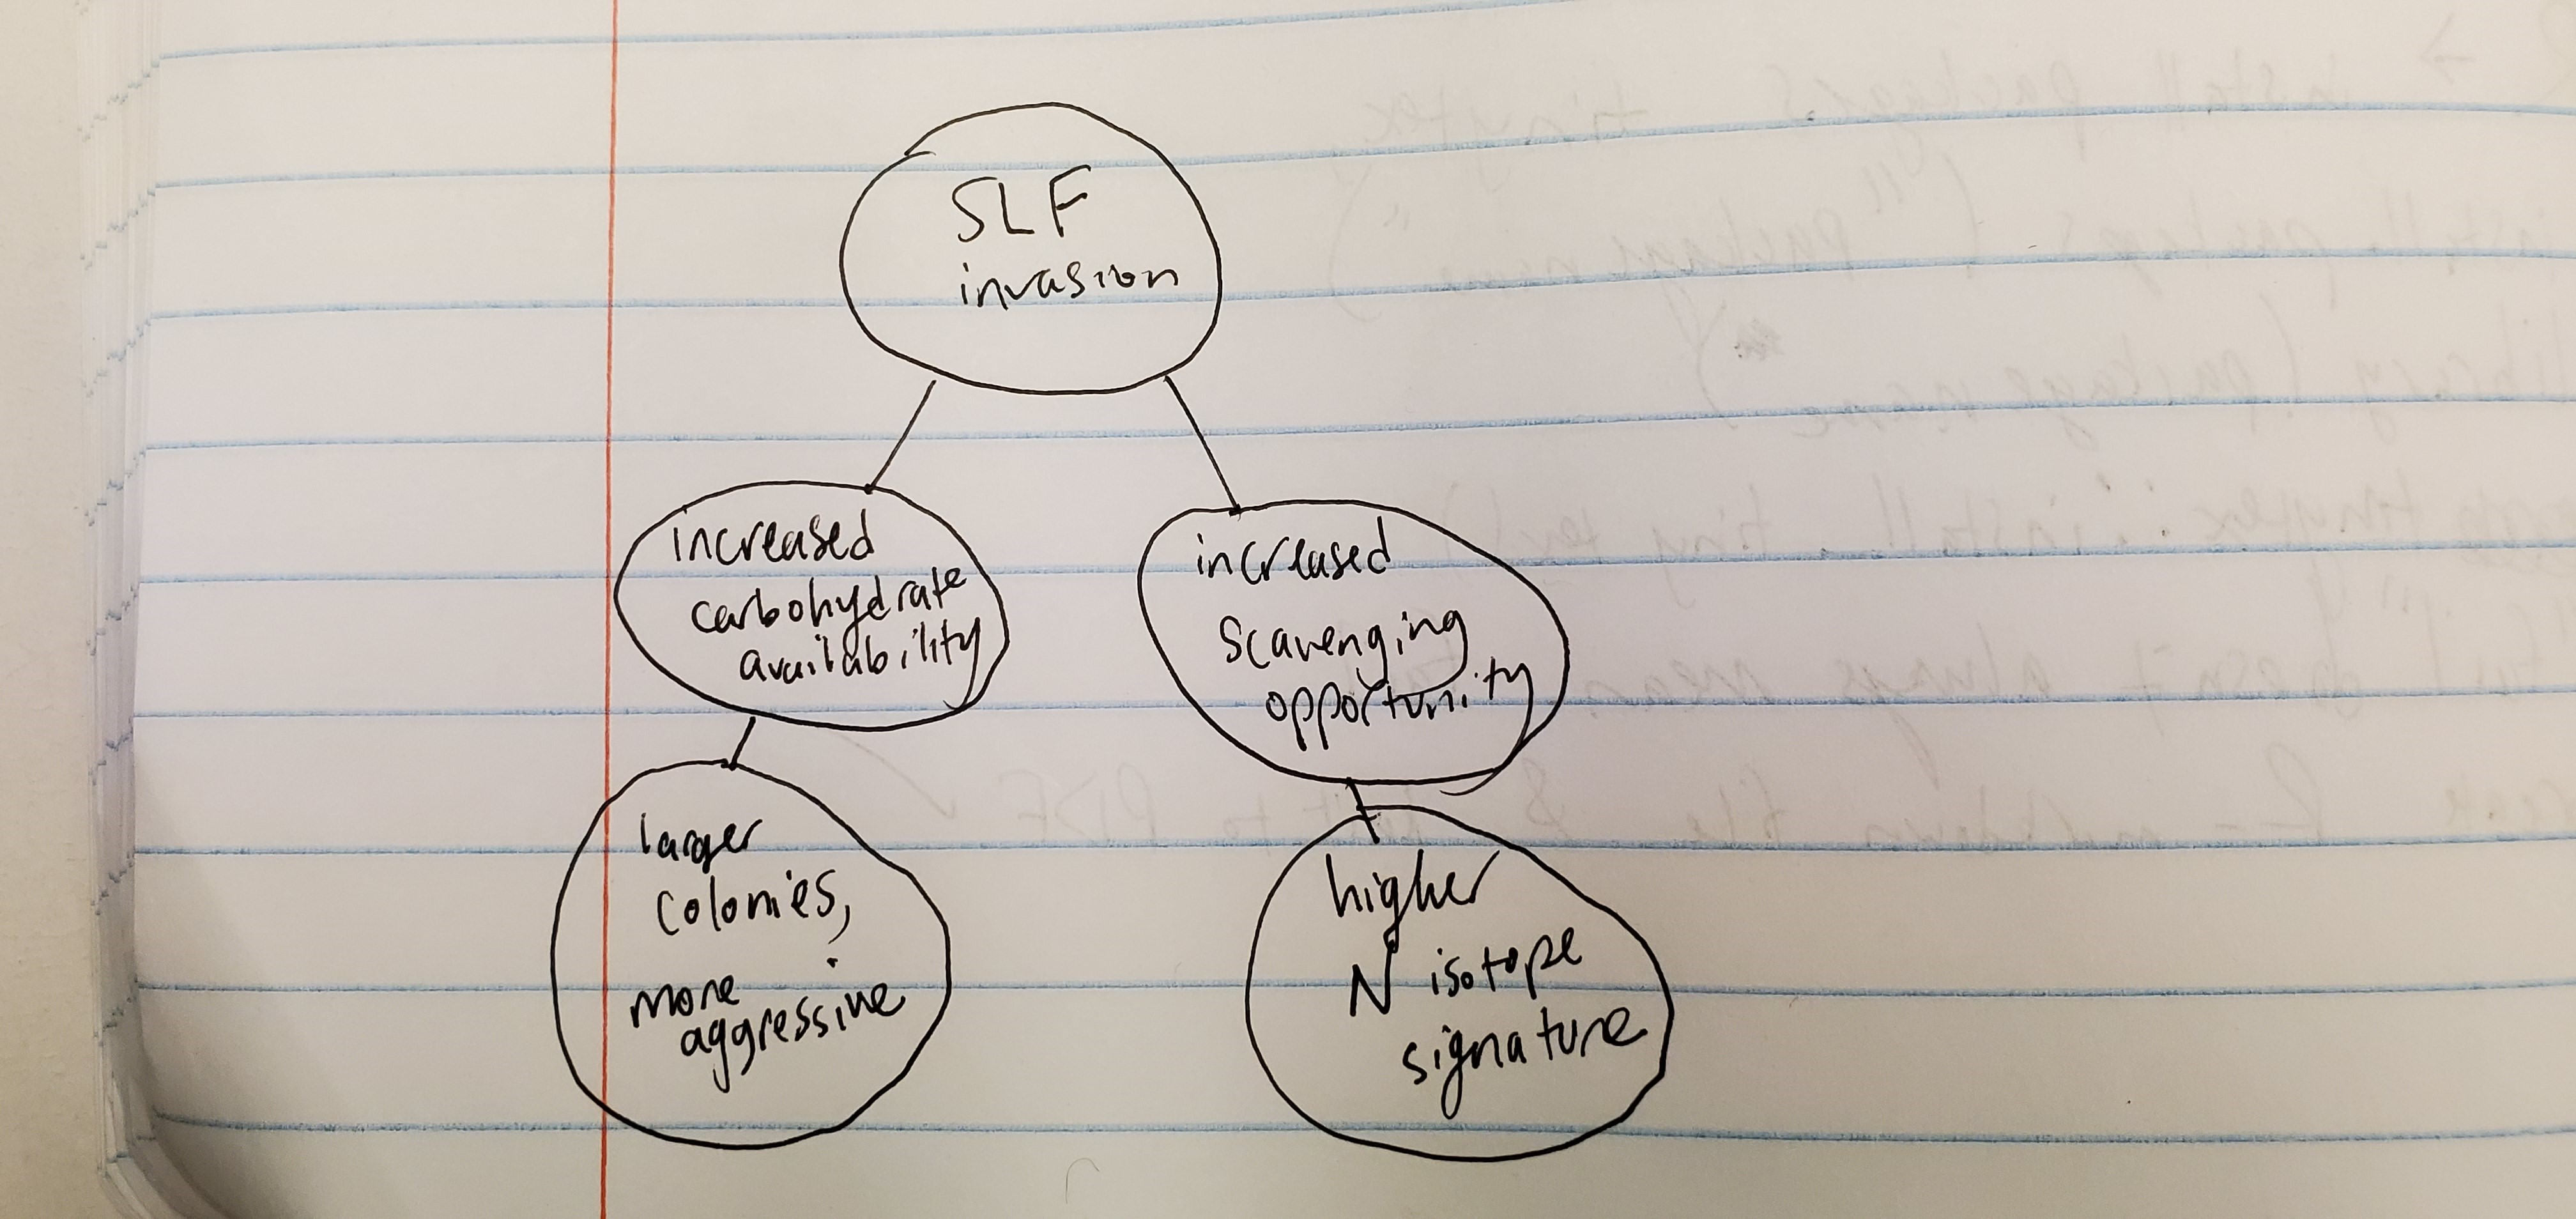 SLF
invasion
increased
carbohydrate
availability
increased
scavenging
opportunity
larger
colonies,
more
aggressive
higher
N isotope
signature